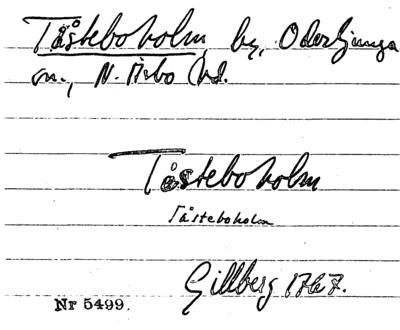 Tåsteboholm, by, Oderljunga
sn., N. Åsbo hd.
Tåsteboholm
Tåsteboholm
Gillberg 1767.
Nr 5499.